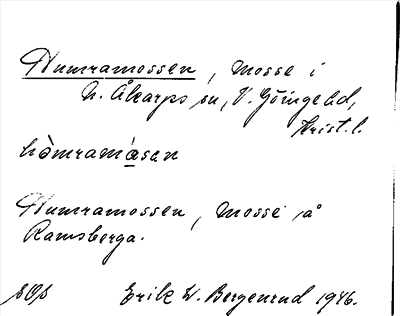 Humramossen, mosse i
N. Åkarps sn, V. Göinge hd,
Krist. l.
hòmramåsen
Humramossen, mosse å
Ramsberga.
Erik W. Bergenrud 1946.